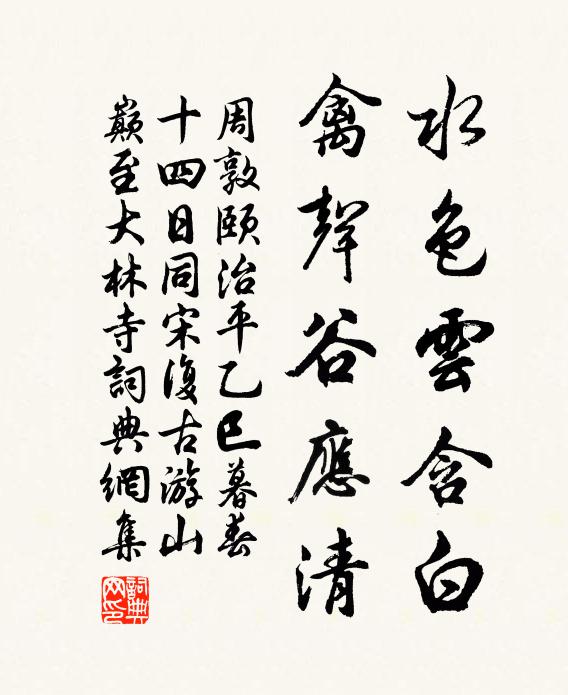 水色雲含白
禽聲谷應清
周敦頤治平乙巳暮春
十四日同宋復古游山
巔至大林寺詞典網集
詞典
网印